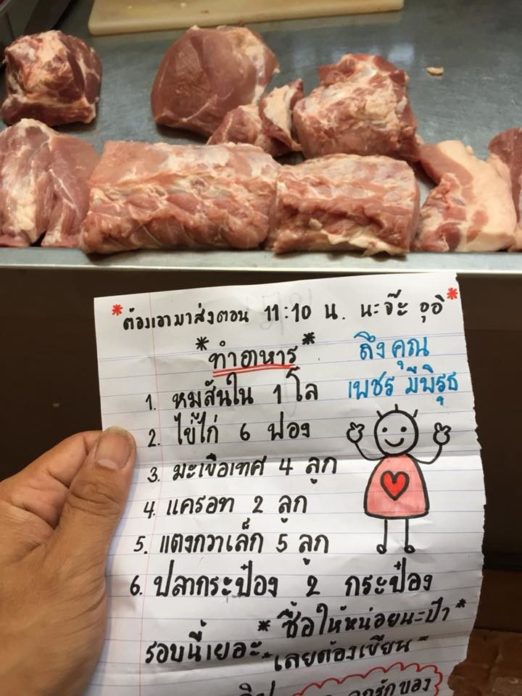 *ต้องเอามาส่งตอน 11:10 น. นะจ๊ะ อุอิ*
*ทำอาหาร*
ถึงคุณ
เพชร มีพิรุธ
1. หมูสันใน 1 โล
2. ไข่ไก่ 6 ฟอง
3. มะเขือเทศ 4 ลูก
4. แครอท 2 ลูก
5. แตงกวาเล็ก 5 ลูก
6. ปลากระป๋อง 2 กระป๋อง
*ซื้อให้หน่อยนะป๊า*
รอบนี้เยอะ "เลยต้องเขียน"